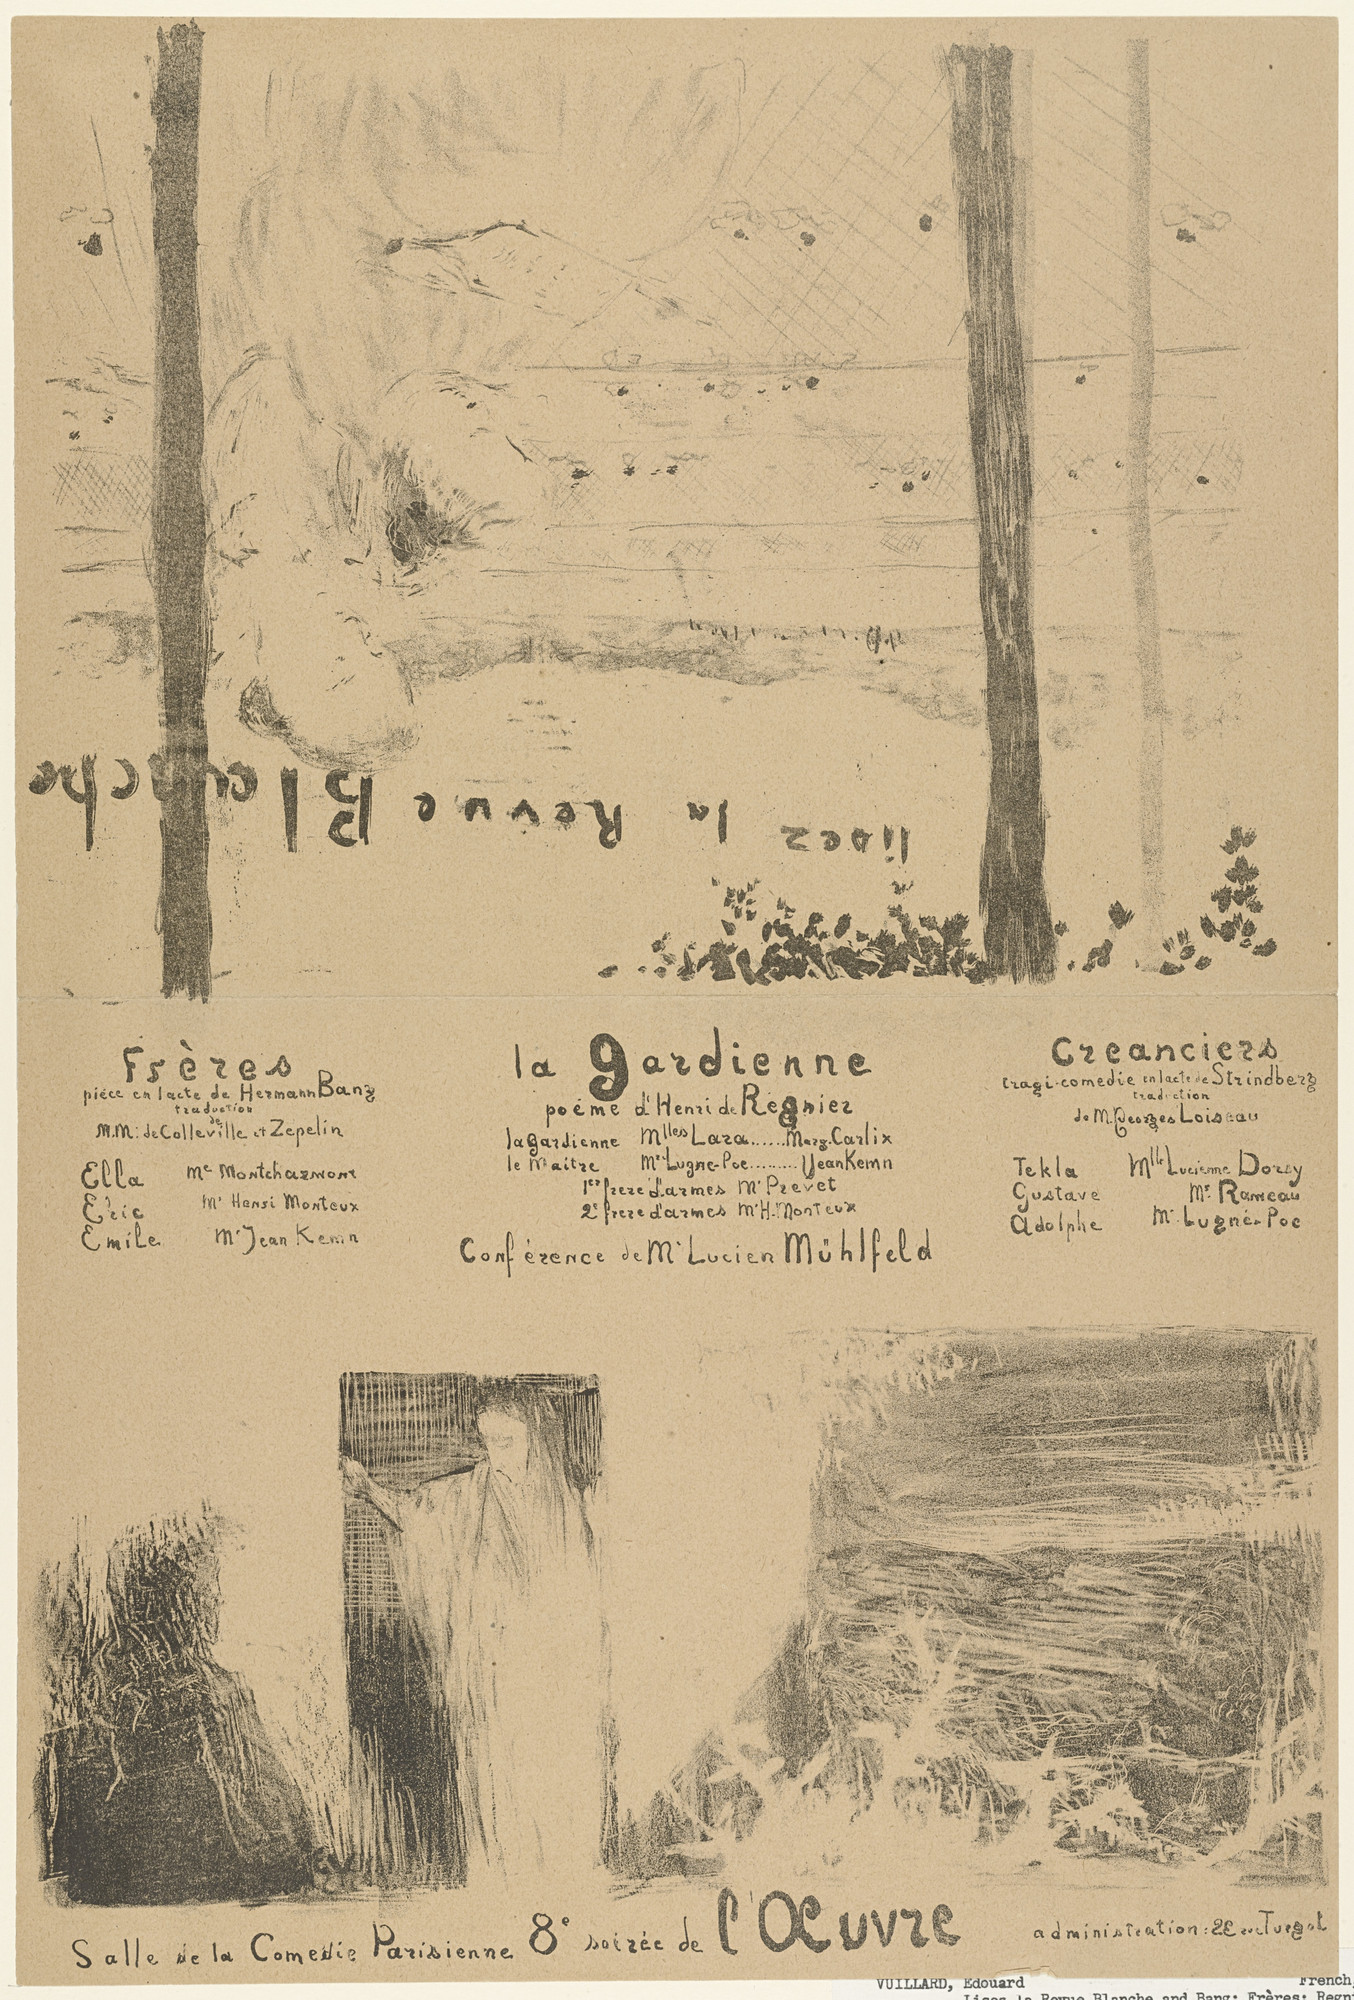 lisez la Revue Blanche
Frères
piéce en 1 acte de Hermann Bang
traduction
de
M.M. de Colleville et Zepelin
Ella Me Montcharmont
Eric Mr Henri Monteux
Emile Mr Jean Kemn
la gardienne
poéme d'Henri de Regnier
la gardienne Mlles Lara......Marg. Carlix
le Maitre Mr Lugne-Poe.........Jean Kemn
1er frere d'armes Mr Prevet
2e frere d'armes Mr H. Monteux
Conférence de Mr Lucien Mühlfeld
Creanciers
tragi-comedie en 1 acte de Strindberg
traduction
de M. Georges Loiseau
Tekla Mlle Lucienne Dorsy
Gustave Mr Rameau
Adolphe Mr Lugné-Poe
Salle de la Comedie Parisienne 8e soirée de l'Œuvre
administration: rue Turgot
VUILLARD, Edouard French,
Lisez la Revue Blanche and Bang: Frères; Regn